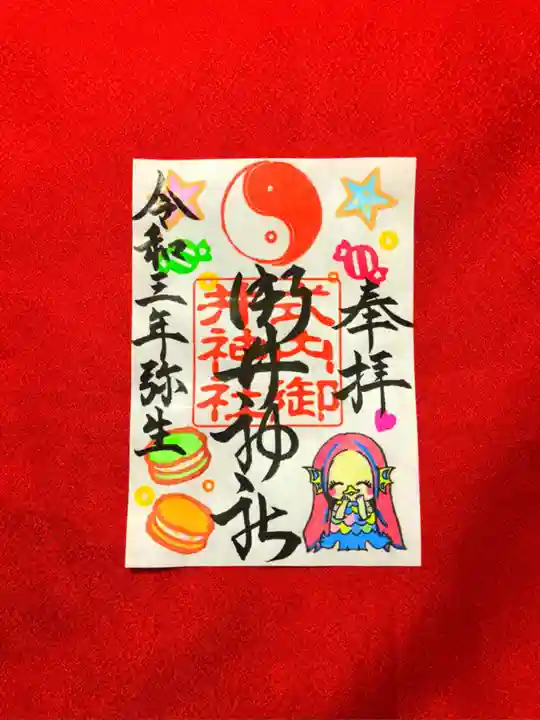 奉拝
御井神社
式内御井神社
令和三年弥生